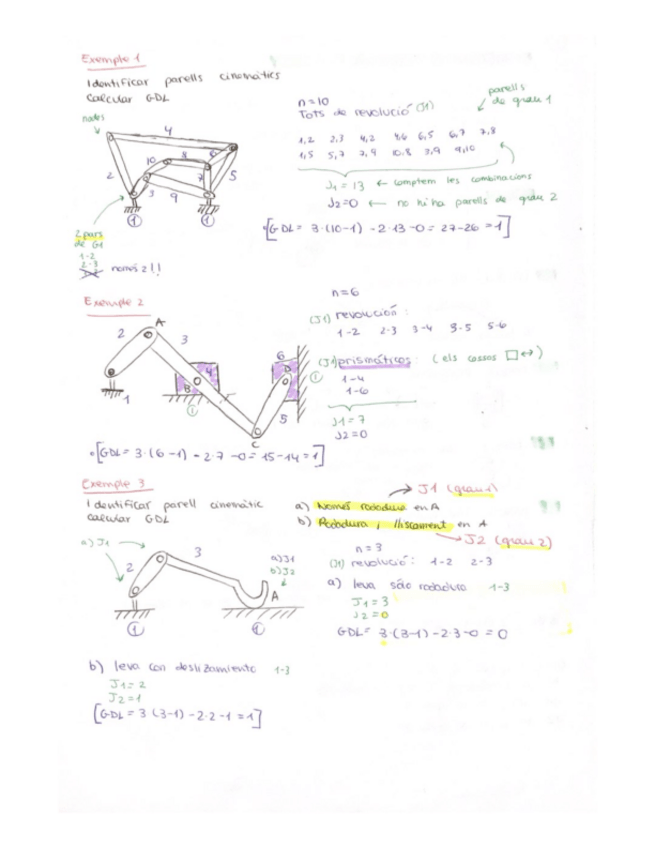 Exemple 1
Identificar parells cinemàtics
Calcular GDL
nodes
4
10
8
6
2
7
5
3
9
1
1
2 pars
de G1
1-2
2-3
només 2!!
n=10
Tots de revolució (J1)
parells
de grau 1
1,2 2,3 4,2 4,6 6,5 6,7 7,8
1,5 5,7 7,9 10,8 3,9 9,10
J1 = 13 ← comptem les combinacions
J2=0 ← no hi ha parells de grau 2
[GDL= 3·(10-1) -2·13-0= 27-26 =1]
Exemple 2
n=6
(J1) revolució :
1-2 2-3 3-4 3-5 5-6
(J1) prismàtics : (els cossos □↔)
1-4
1-6
J1=7
J2=0
A
2
3
6
4
D
B
1
1
1
5
C
[GDL= 3·(6-1) -2·7 -0= 15-14=1]
Exemple 3
Identificar parell cinemàtic
calcular GDL
→ J1 (grau 1)
a) Només rodadura en A
b) Rodadura i lliscament en A
→ J2 (grau 2)
a) J1
2
3
a) J1
b) J2
A
1
1
n=3
(J1) revolució: 1-2 2-3
a) leva sólo rodadura 1-3
J1=3
J2=0
GDL= 3·(3-1)-2·3-0 = 0
b) leva con deslizamiento 1-3
J1=2
J2=1
[GDL = 3·(3-1) -2·2-1 =1]